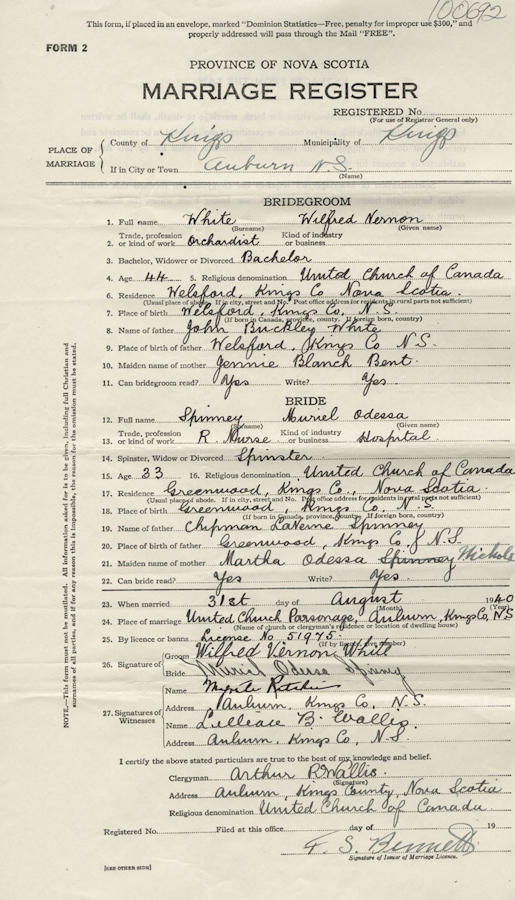 100692
This form, if placed in an envelope, marked "Dominion Statistics—Free, penalty for improper use $300," and
properly addressed will pass through the Mail "FREE".
FORM 2
PROVINCE OF NOVA SCOTIA
MARRIAGE REGISTER
REGISTERED No.
(For use of Registrar General only)
PLACE OF MARRIAGE
County of Kings Municipality of Kings
If in City or Town Auburn N.S.
(Name)
BRIDEGROOM
1. Full name White Wilfred Vernon
(Surname) (Given name)
2. Trade, profession or kind of work Orchardist Kind of industry or business
3. Bachelor, Widower or Divorced Bachelor
4. Age 44 5. Religious denomination United Church of Canada
6. Residence Welsford, Kings Co Nova Scotia.
(Usual place of abode. If in city, street and No. Post office address for residents in rural parts not sufficient)
7. Place of birth Welsford, Kings Co, N.S.
(If born in Canada, province, county. If foreign born, country)
8. Name of father John Buckley White
9. Place of birth of father Welsford, Kings Co N.S.
10. Maiden name of mother Jennie Blanch Bent.
11. Can bridegroom read? Yes Write? Yes
BRIDE
12. Full name Spinney Muriel Odessa
(Surname) (Given name)
13. Trade, profession or kind of work R. Nurse Kind of industry or business Hospital
14. Spinster, Widow or Divorced Spinster
15. Age 33 16. Religious denomination United Church of Canada
17. Residence Greenwood, Kings Co., Nova Scotia.
(Usual place of abode. If in city, street and No. Post office address for residents in rural parts not sufficient)
18. Place of birth Greenwood, Kings Co, N.S.
(If born in Canada, province, county. If foreign born, country)
19. Name of father Chipman LaVerne Spinney
20. Place of birth of father Greenwood, Kings Co N.S.
21. Maiden name of mother Martha Odessa Spinney Nichols
22. Can bride read? Yes Write? Yes.
23. When married 31st day of August 1940
(Month)
24. Place of marriage United Church Parsonage, Auburn, Kings Co, N.S
(Name of church or clergyman's residence or location of dwelling house)
25. By licence or banns License No. 51975.
(If by licence, give number)
26. Signature of
Groom Wilfred Vernon White
Bride Muriel Odessa Spinney
27. Signatures of Witnesses
Name
Address Auburn, Kings Co, N.S.
Name Lillian B. Wallis
Address Auburn. Kings Co, N.S.
I certify the above stated particulars are true to the best of my knowledge and belief.
Clergyman Arthur R Wallis.
(Signature)
Address Auburn, Kings County, Nova Scotia
Religious denomination United Church of Canada.
Registered No. Filed at this office day of 19
F. S. Bennett
Signature of Issuer of Marriage Licence.
[SEE OTHER SIDE]
NOTE.—This form must not be mutilated. All information asked for is to be given, including full Christian and
surnames of all parties, and if for any reason this is impossible, the reason for the omission must be stated.